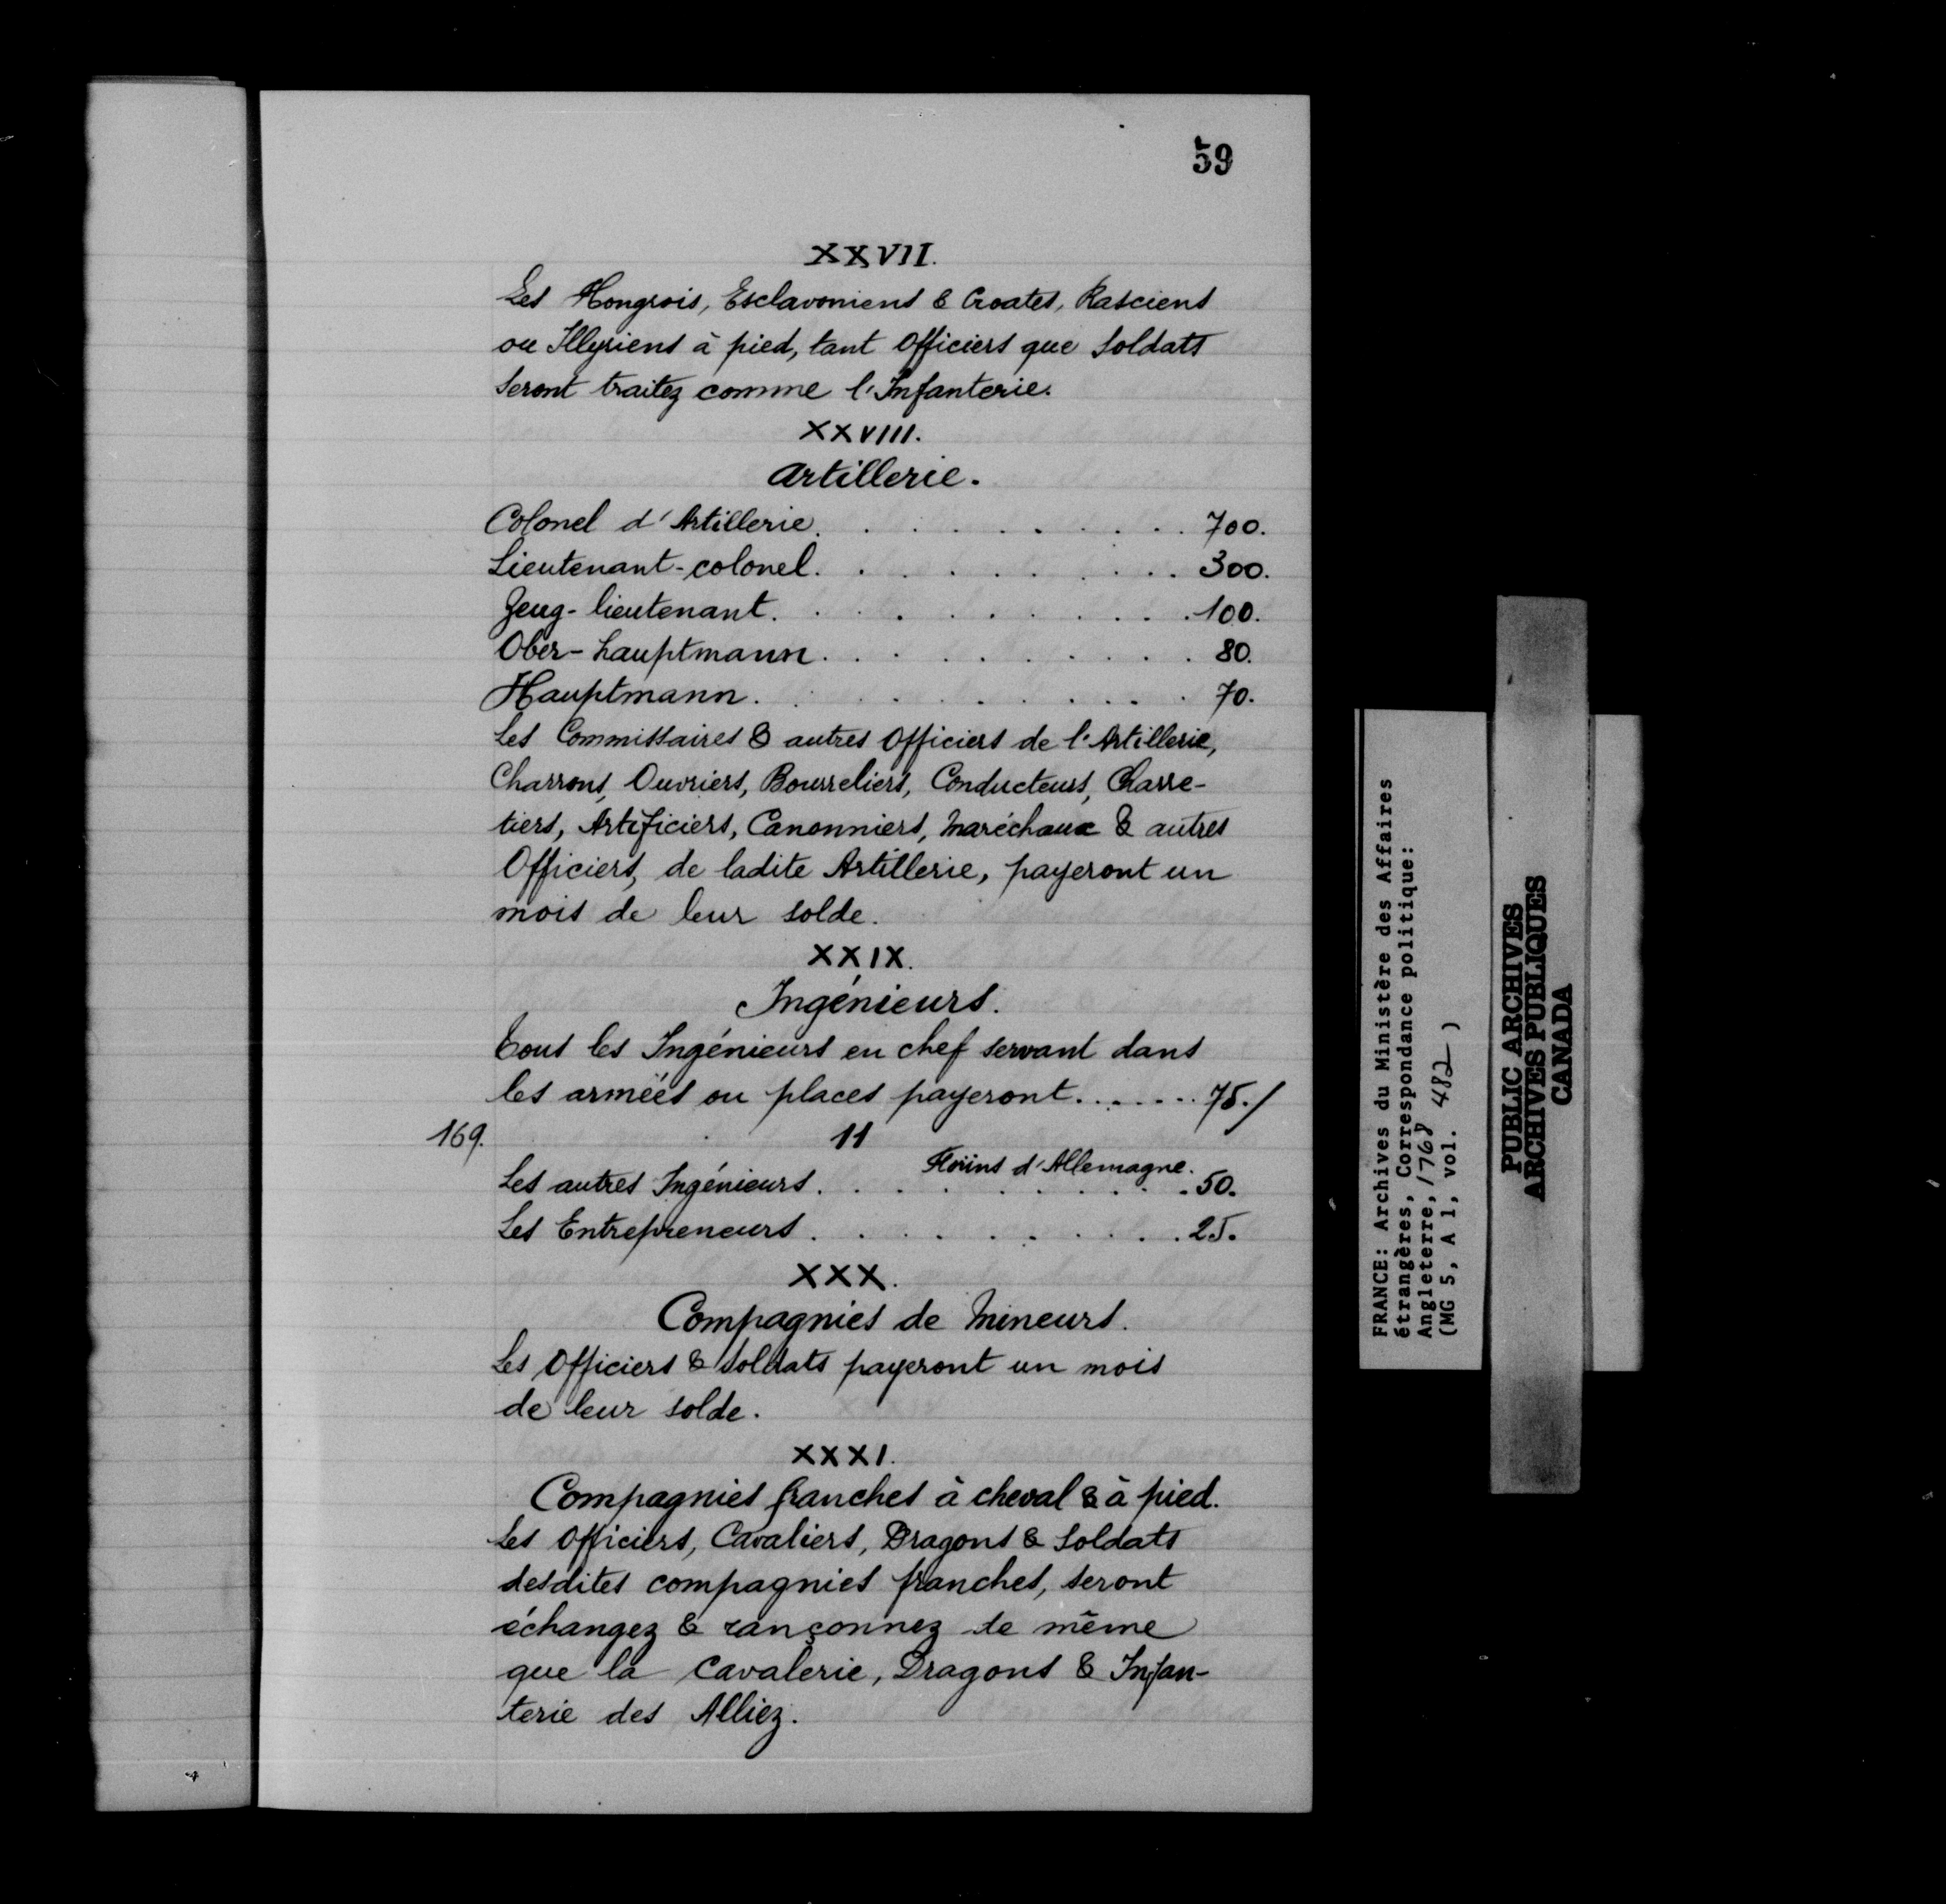 59
XXVII.
Les Hongrois, Esclavoniens & Croates, Rasciens
ou Illyriens à pied, tant Officiers que Soldats
seront traitez comme l'Infanterie.
XXVIII.
Artillerie.
Colonel d'Artillerie. . . . . . . . . . 700.
Lieutenant-colonel. . . . . . . . . . 300.
Zeug-lieutenant. . . . . . . . . . 100.
Ober-hauptmann. . . . . . . . . . 80.
Hauptmann. . . . . . . . . . 70.
Les Commissaires & autres Officiers de l'Artillerie,
Charrons, Ouvriers, Bourreliers, Conducteurs, Charre-
tiers, Artificiers, Canonniers, Maréchaux & autres
Officiers, de ladite Artillerie, payeront un
mois de leur solde.
XXIX.
Ingénieurs.
Tous les Ingénieurs en chef servant dans
les armées ou places payeront. . . . . . . 75./
169. 11
Florins d'Allemagne.
Les autres Ingénieurs. . . . . . . . . . 50.
Les Entrepreneurs . . . . . . . . . . 25.
XXX.
Compagnies de Mineurs.
Les Officiers & Soldats payeront un mois
de leur solde.
XXXI.
Compagnies franches à cheval & à pied.
Les Officiers, Cavaliers, Dragons & Soldats
desdites compagnies franches, seront
échangez & rançonnez de même
que la Cavalerie, Dragons & Infan-
terie des Alliez.
FRANCE: Archives du Ministère des Affaires
étrangères, Correspondance politique:
Angleterre, 1768
(MG 5, A 1, vol. 482 )
PUBLIC ARCHIVES
ARCHIVES PUBLIQUES
CANADA